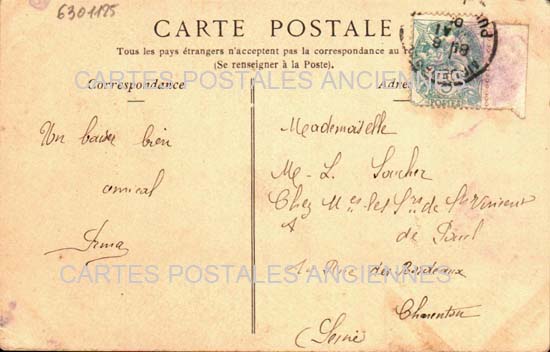 6301125
CARTE POSTALE
Tous les pays étrangers n'acceptent pas la correspondance au
(Se renseigner à la Poste).
CARTES POSTALES ANCIENNES
Correspondance
Adre
Un baiser bien
amical
Irma
Mademoiselle
M- L. Soucher
Chez Mes les Srs de St Vincent
de Paul
1. Rue des Bordeaux
CARTES POSTALES ANCIENNES
Charenton
Seine